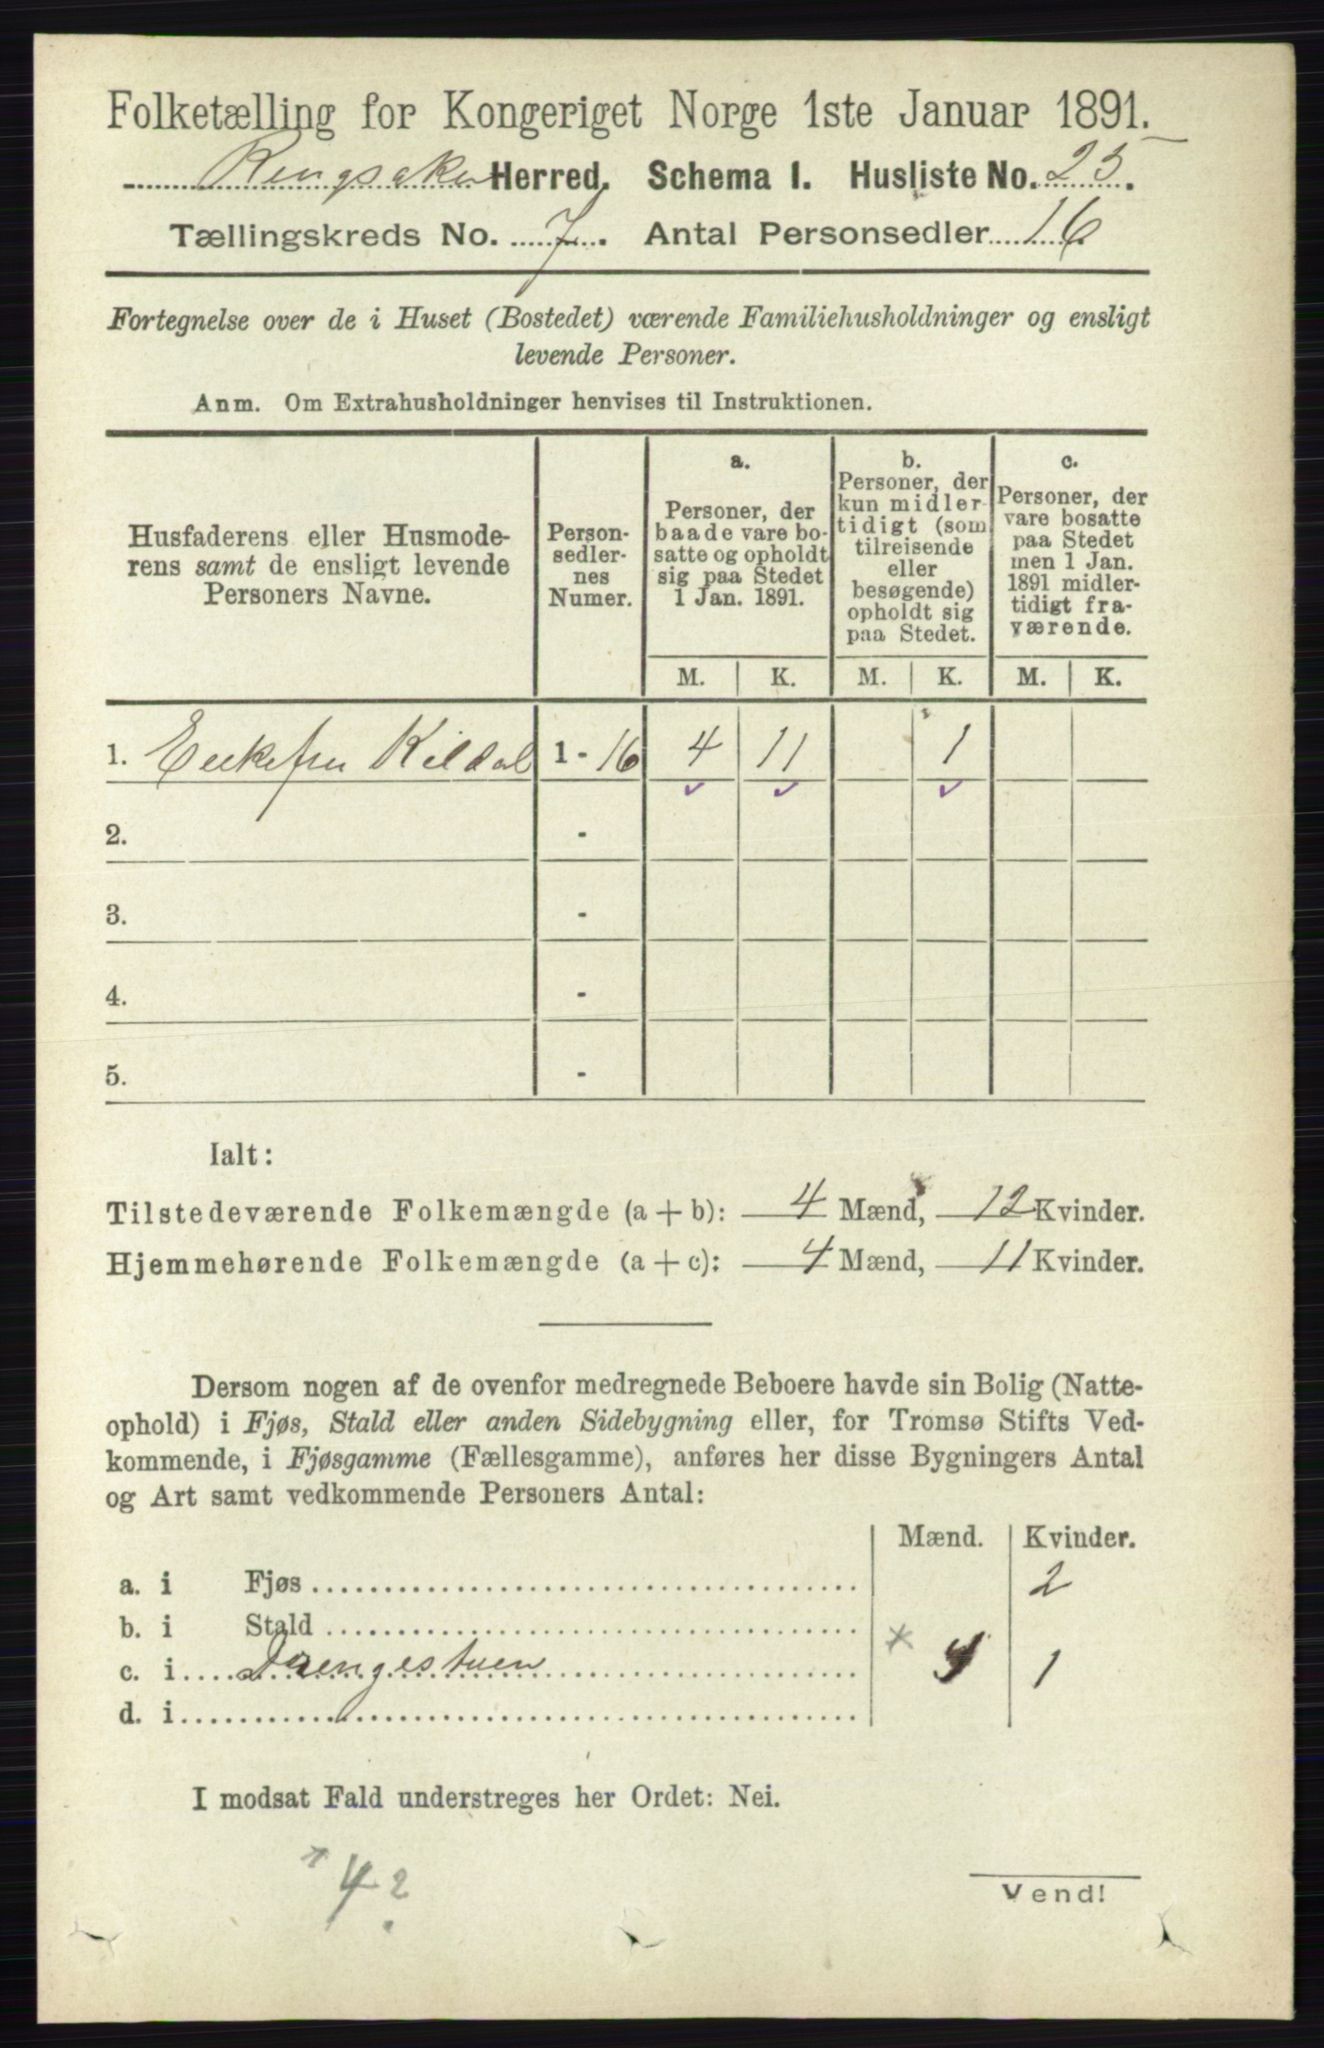 Folketælling for Kongeriget Norge 1ste Januar 1891.
Ringsaker Herred. Schema 1. Husliste No. 25.
Tællingskreds No. 7. Antal Personsedler 16
Fortegnelse over de i Huset (Bostedet) værende Familiehusholdninger og ensligt
levende Personer.
Anm. Om Extrahusholdninger henvises til Instruktionen.
Husfaderens eller Husmode-
rens samt de ensligt levende
Personers Navne.
Person-
sedler-
nes
Numer.
a.
Personer, der
baade vare bo-
satte og opholdt
sig paa Stedet
1 Jan. 1891.
b.
Personer, der
kun midler-
tidigt (som
tilreisende
eller
besøgende)
opholdt sig
paa Stedet.
c.
Personer, der
vare bosatte
paa Stedet
men 1 Jan.
1891 midler-
tidigt fra-
værende.
M. K. M. K. M. K.
1. Enkefru Kildal 1 - 16 4 11 1
2. -
3. -
4. -
5. -
Ialt:
Tilstedeværende Folkemængde (a + b): 4 Mænd, 12 Kvinder.
Hjemmehørende Folkemængde (a + c): 4 Mænd, 11 Kvinder.
Dersom nogen af de ovenfor medregnede Beboere havde sin Bolig (Natte-
ophold) i Fjøs, Stald eller anden Sidebygning eller, for Tromsø Stifts Ved-
kommende, i Fjøsgamme (Fællesgamme), anføres her disse Bygningers Antal
og Art samt vedkommende Personers Antal:
Mænd. Kvinder.
a. i Fjøs 2
b. i Stald
c. i Drengestuen 1
d. i
I modsat Fald understreges her Ordet: Nei.
4?
Vend!